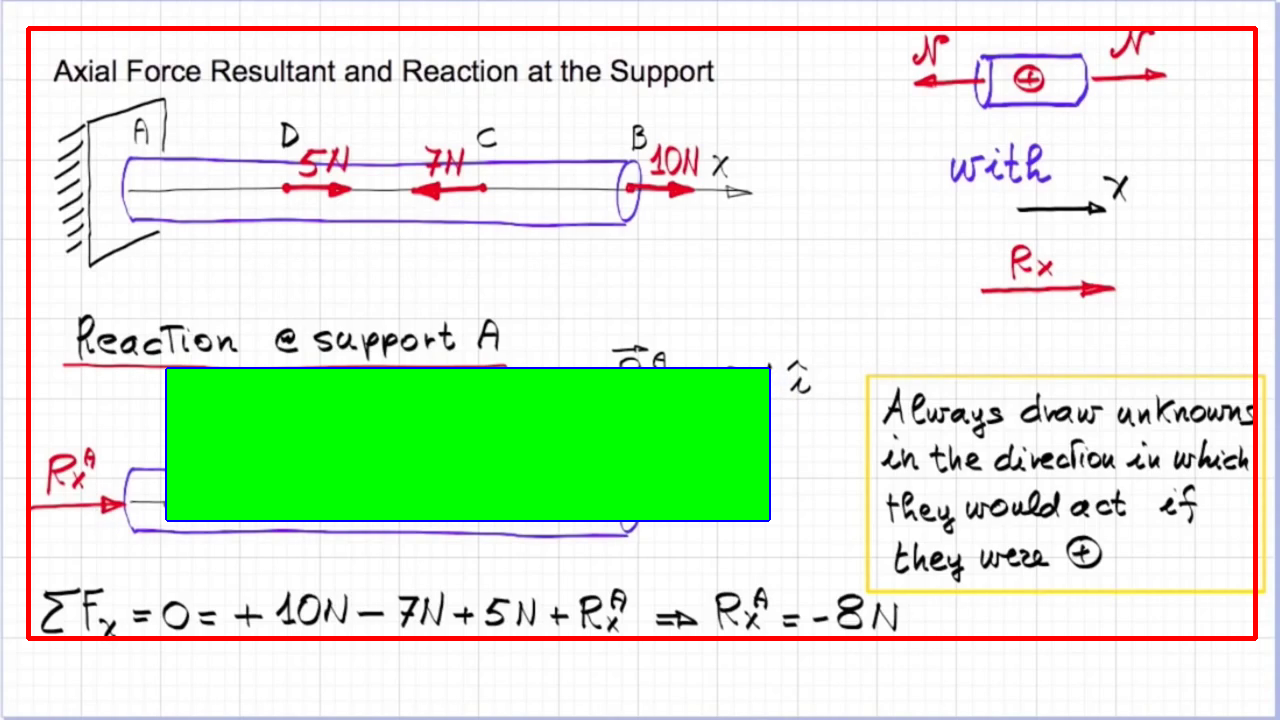 Axial Force Resultant and Reaction at the Support
N + N
A D 5N 7N C B 10N x
with
x
Rx
Reaction @ support A
î
Always draw unknowns
in the direction in which
they would act if
they were ⊕
Rₓᴬ
ΣFₓ = 0 = + 10N − 7N + 5N + Rₓᴬ ⇒ Rₓᴬ = -8N